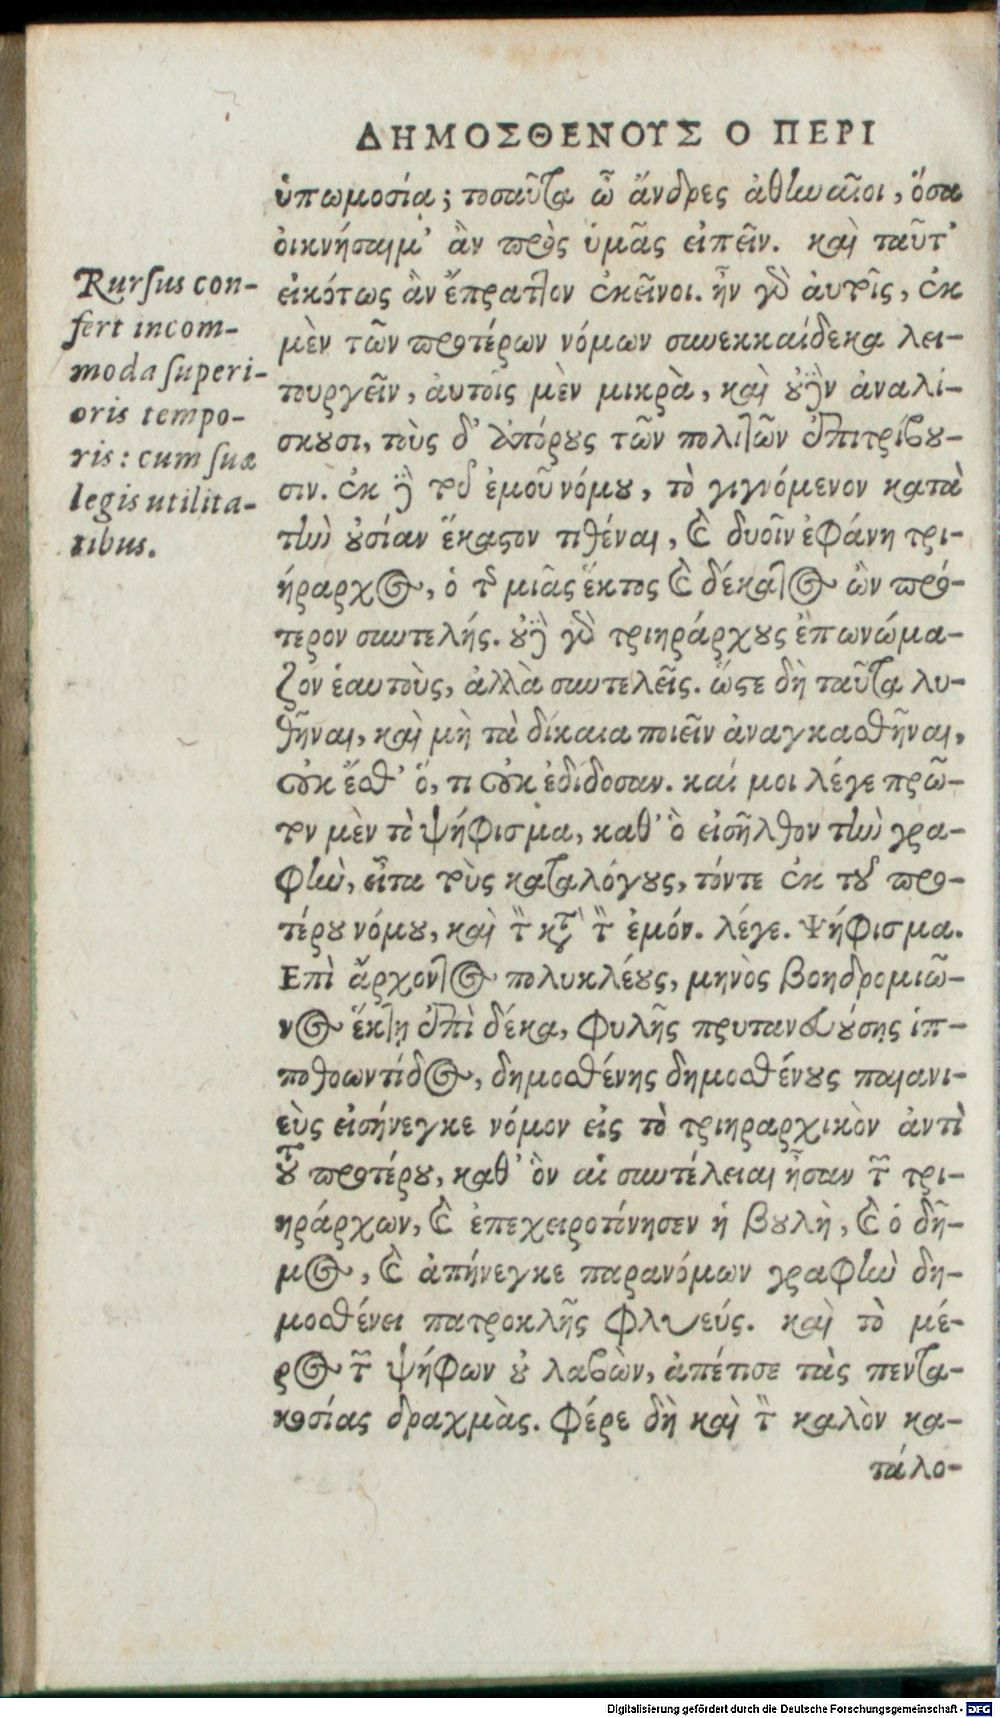 ΔΗΜΟΣΘΕΝΟΥΣ Ο ΠΕΡΙ
ὑπωμοσίᾳ; τοσαῦτα ὦ ἄνδρες ἀθηναῖοι, ὅσα
ὀικνήσαιμ’ ἂν πρὸς ὑμᾶς εἰπεῖν. καὶ ταῦτ’
εἰκότως ἂν ἔπραττον ἐκεῖνοι. ἦν γὰρ ἀυτοῖς, ἐκ
μὲν τῶν προτέρων νόμων συνεκκαίδεκα λει-
τουργεῖν, ἀυτοῖς μὲν μικρὰ, καὶ οὐδὲν ἀναλί-
σκουσι, τοὺς δ’ ἀπόρους τῶν πολιτῶν ἐπιτρίβου-
σιν. ἐκ δὲ τοῦ ἐμοῦ νόμου, τὸ γιγνόμενον κατὰ
τὴν οὐσίαν ἕκαστον τιθέναι, καὶ δυοῖν ἐφάνη τρι-
ήραρχος, ὁ τῆς μιᾶς ἕκτος καὶ δέκατος ὢν πρό-
τερον συντελής. οὐδὲ γὰρ τριηράρχους ἐπωνόμα-
ζον ἑαυτοὺς, ἀλλὰ συντελεῖς. ὥστε δὴ ταῦτα λυ-
θῆναι, καὶ μὴ τὰ δίκαια ποιεῖν ἀναγκασθῆναι,
οὐκ ἔσθ’ ὅ, τι οὐκ ἐδίδοσαν. καί μοι λέγε πρῶ-
τον μὲν τὸ ψήφισμα, καθ’ ὃ εἰσῆλθον τὴν γρα-
φὴν, εἶτα τοὺς καταλόγους, τόντε ἐκ τοῦ προ-
τέρου νόμου, καὶ τὸν κατὰ τὸν ἐμόν. λέγε. Ψήφισμα.
Επὶ ἄρχοντος πολυκλέους, μηνὸς βοηδρομιῶ-
νος ἕκτῃ ἐπὶ δέκα, φυλῆς πρυτανευούσης ἱπ-
ποθοωντίδος, δημοσθένης δημοσθένους παιανι-
εὺς εἰσήνεγκε νόμον εἰς τὸ τριηραρχικὸν ἀντὶ
τοῦ προτέρου, καθ’ ὃν αἱ συντέλειαι ἦσαν τῶν τρι-
ηράρχων, καὶ ἐπεχειροτόνησεν ἡ βουλὴ, καὶ ὁ δῆ-
μος, καὶ ἀπήνεγκε παρανόμων γραφὴν δη-
μοσθένει πατροκλῆς φλυεύς. καὶ τὸ μέ-
ρος τῶν ψήφων οὐ λαβὼν, ἀπέτισε τὰς πεντα-
κοσίας δραχμὰς. Φέρε δὴ καὶ τὸν καλὸν κα-
τάλο-
Rursus con-
fert incom-
moda superi-
oris tempo-
ris: cum suæ
legis utilita-
tibus.
Digitalisierung gefördert durch die Deutsche Forschungsgemeinschaft - DFG